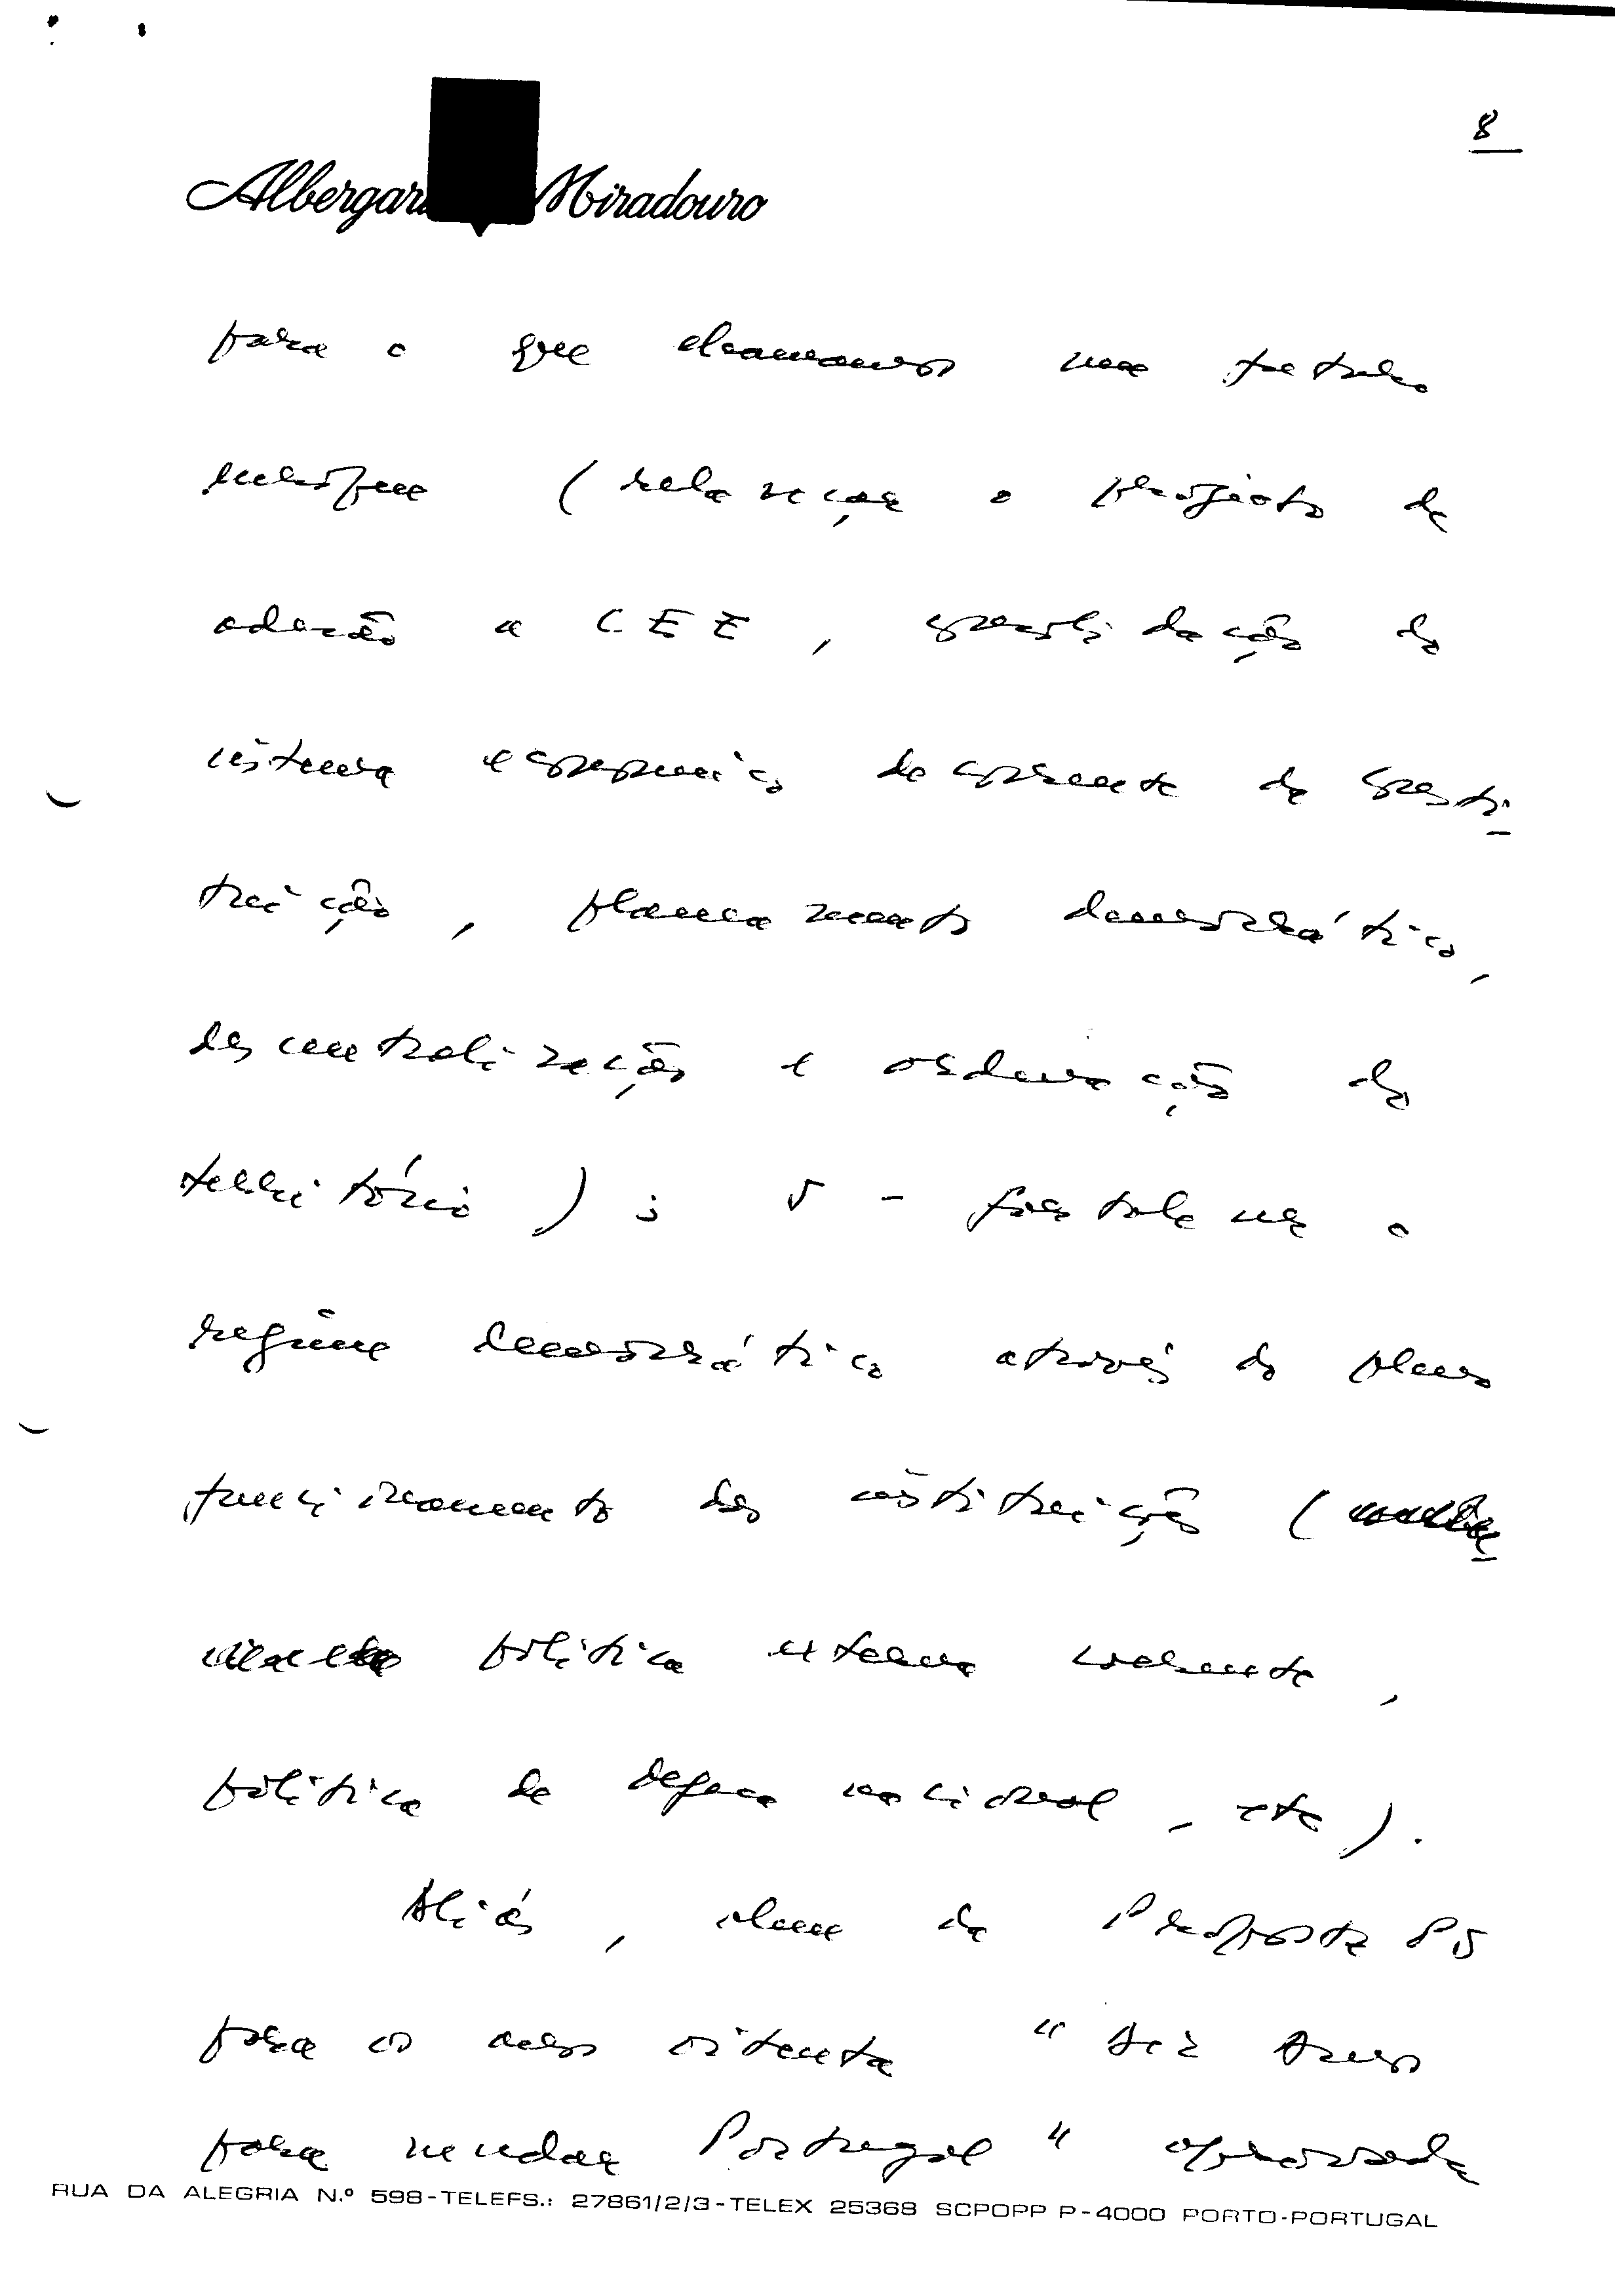 8
Albergar Miradouro
para o que chamamos um futuro
europeu (relançar o projecto de
adesão a CEE, consolidação do
sistema economico decorrente da consti-
tuição, planeamento democrático,
descentralização e ordenação do
território); 5 - fortalecer o
regime democrático através do pleno
funcionamento das instituições (
política externa coerente,
política de defesa nacional, etc).
Aliás, além da Proposta PS
para os anos oitenta "Dez Anos
para mudar Portugal" aprovada
RUA DA ALEGRIA N.º 598-TELEFS.: 27861/2/3-TELEX 25368 SCPOPP P-4000 PORTO-PORTUGAL